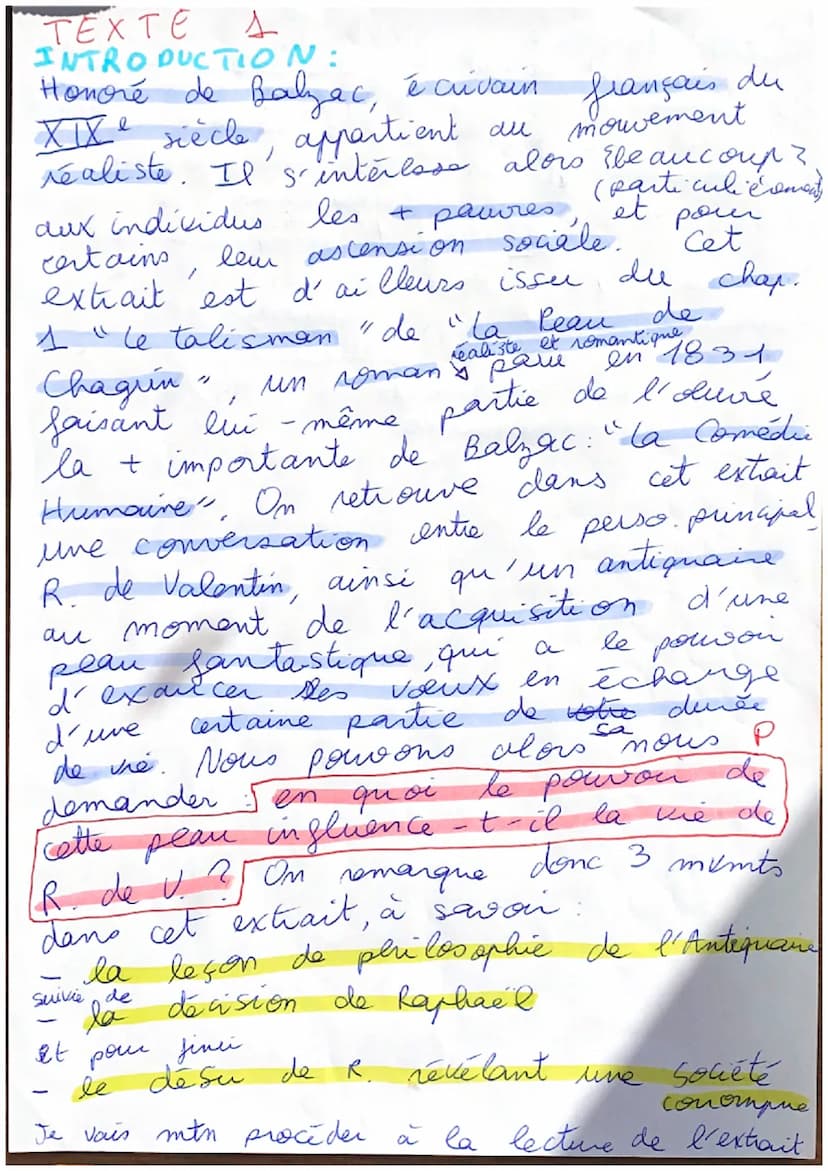 TEXTE 1
INTRODUCTION :
Honoré de Balzac, écrivain français du
XIXe siècle, appartient au mouvement
réaliste. Il s'intéresse alors {beaucoup}
(particulièrement)
aux individus les + pauvres, et pour
certains, leur ascension sociale. Cet
extrait est d'ailleurs issu du chap.
1 "le talisman" de "La Peau de
réaliste et romantique
Chagrin", un roman paru en 1831
faisant lui-même partie de l'oeuvre
la + importante de Balzac : "La Comédie
Humaine". On retrouve dans cet extrait
une conversation entre le perso. principal
R. de Valentin, ainsi qu'un antiquaire
au moment de l'acquisition d'une
peau fantastique, qui a le pouvoir
d'exaucer les voeux en échange
d'une certaine partie de votre durée
sa
de vie. Nous pouvons alors nous P
demander : en quoi le pouvoir de
cette peau influence-t-il la vie de
R. de V. ? On remarque donc 3 mvmts
dans cet extrait, à savoir :
- la leçon de philosophie de l'Antiquaire
suivie de
- la décision de Raphaël
et pour finir
- le désir de R. révélant une société
corrompue
Je vais mtn procéder à la lecture de l'extrait